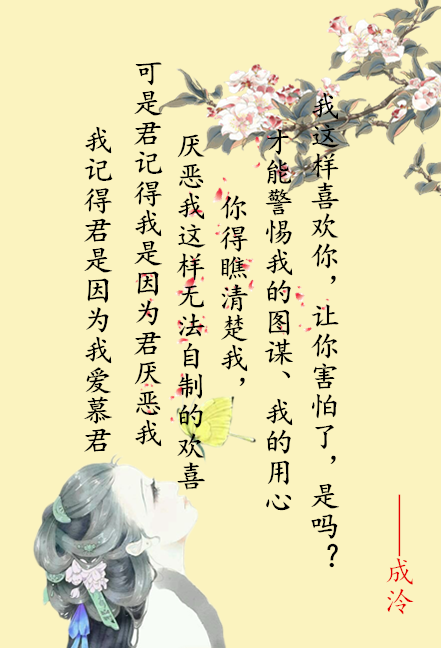 我记得君是因为我爱慕君
可是君记得我是因为君厌恶我
厌恶我这样无法自制的欢喜
你得瞧清楚我，
才能警惕我的图谋、我的用心
我这样喜欢你，让你害怕了，是吗？
——成泠